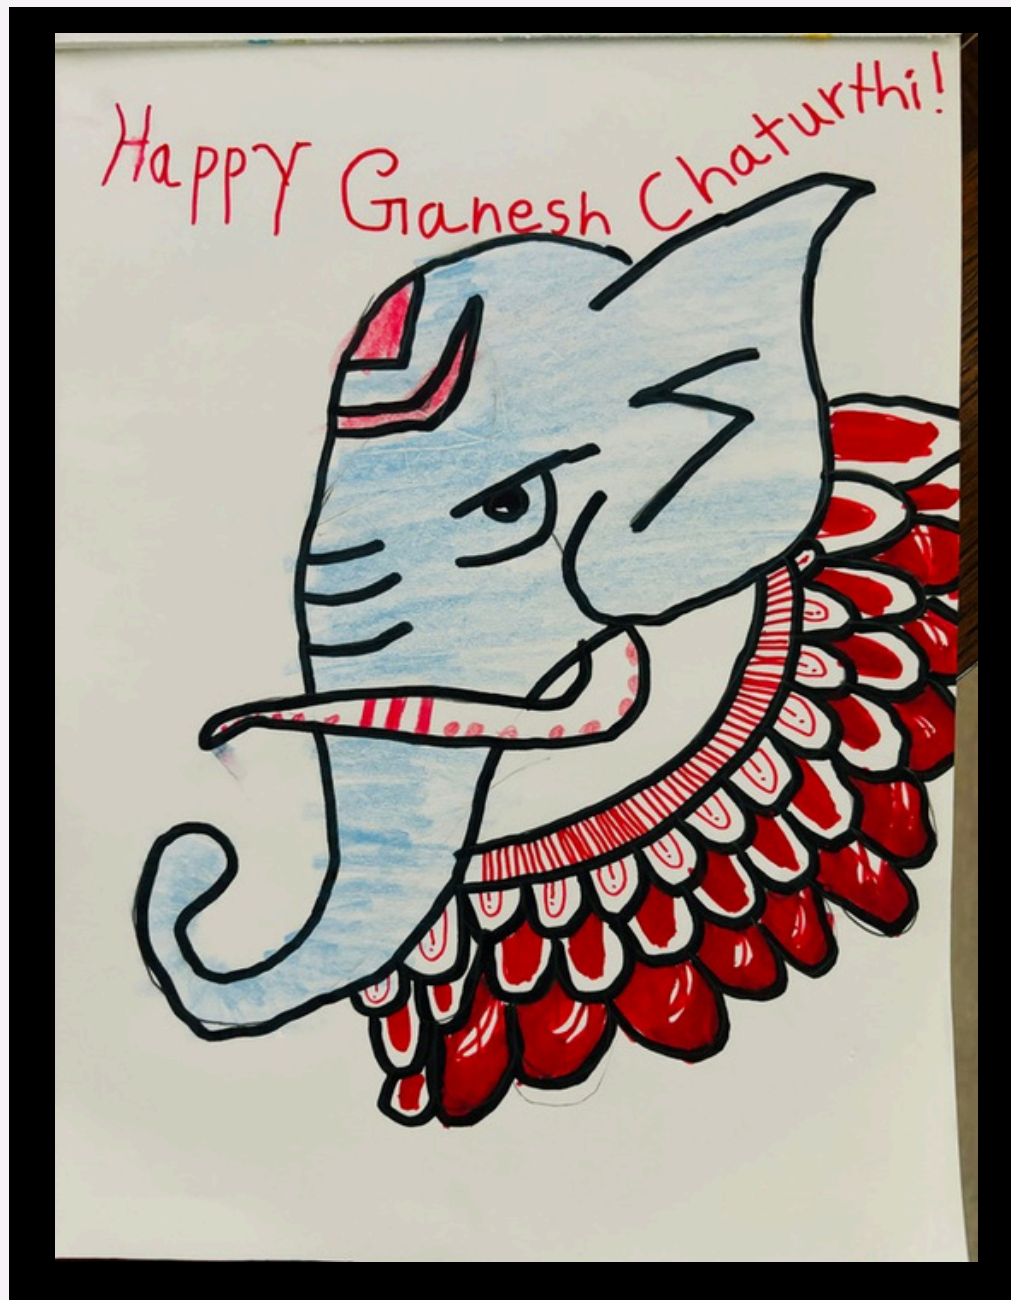 Happy Ganesh Chaturthi!